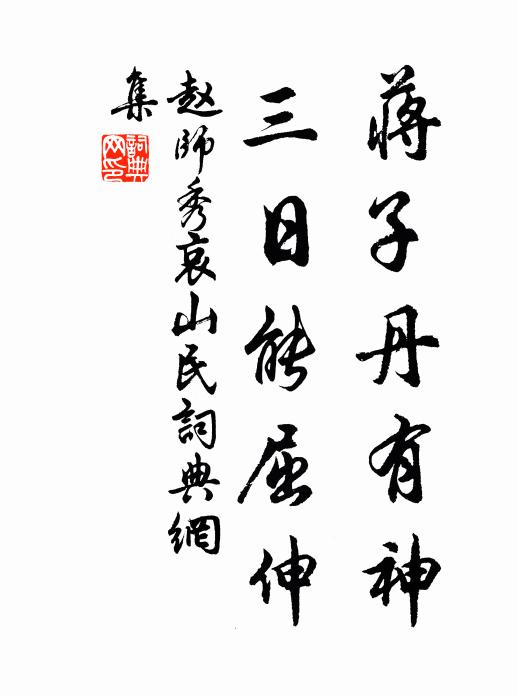 蒋子丹有神
三日能屈伸
赵師秀哀山民詞典網
集
詞典
网印